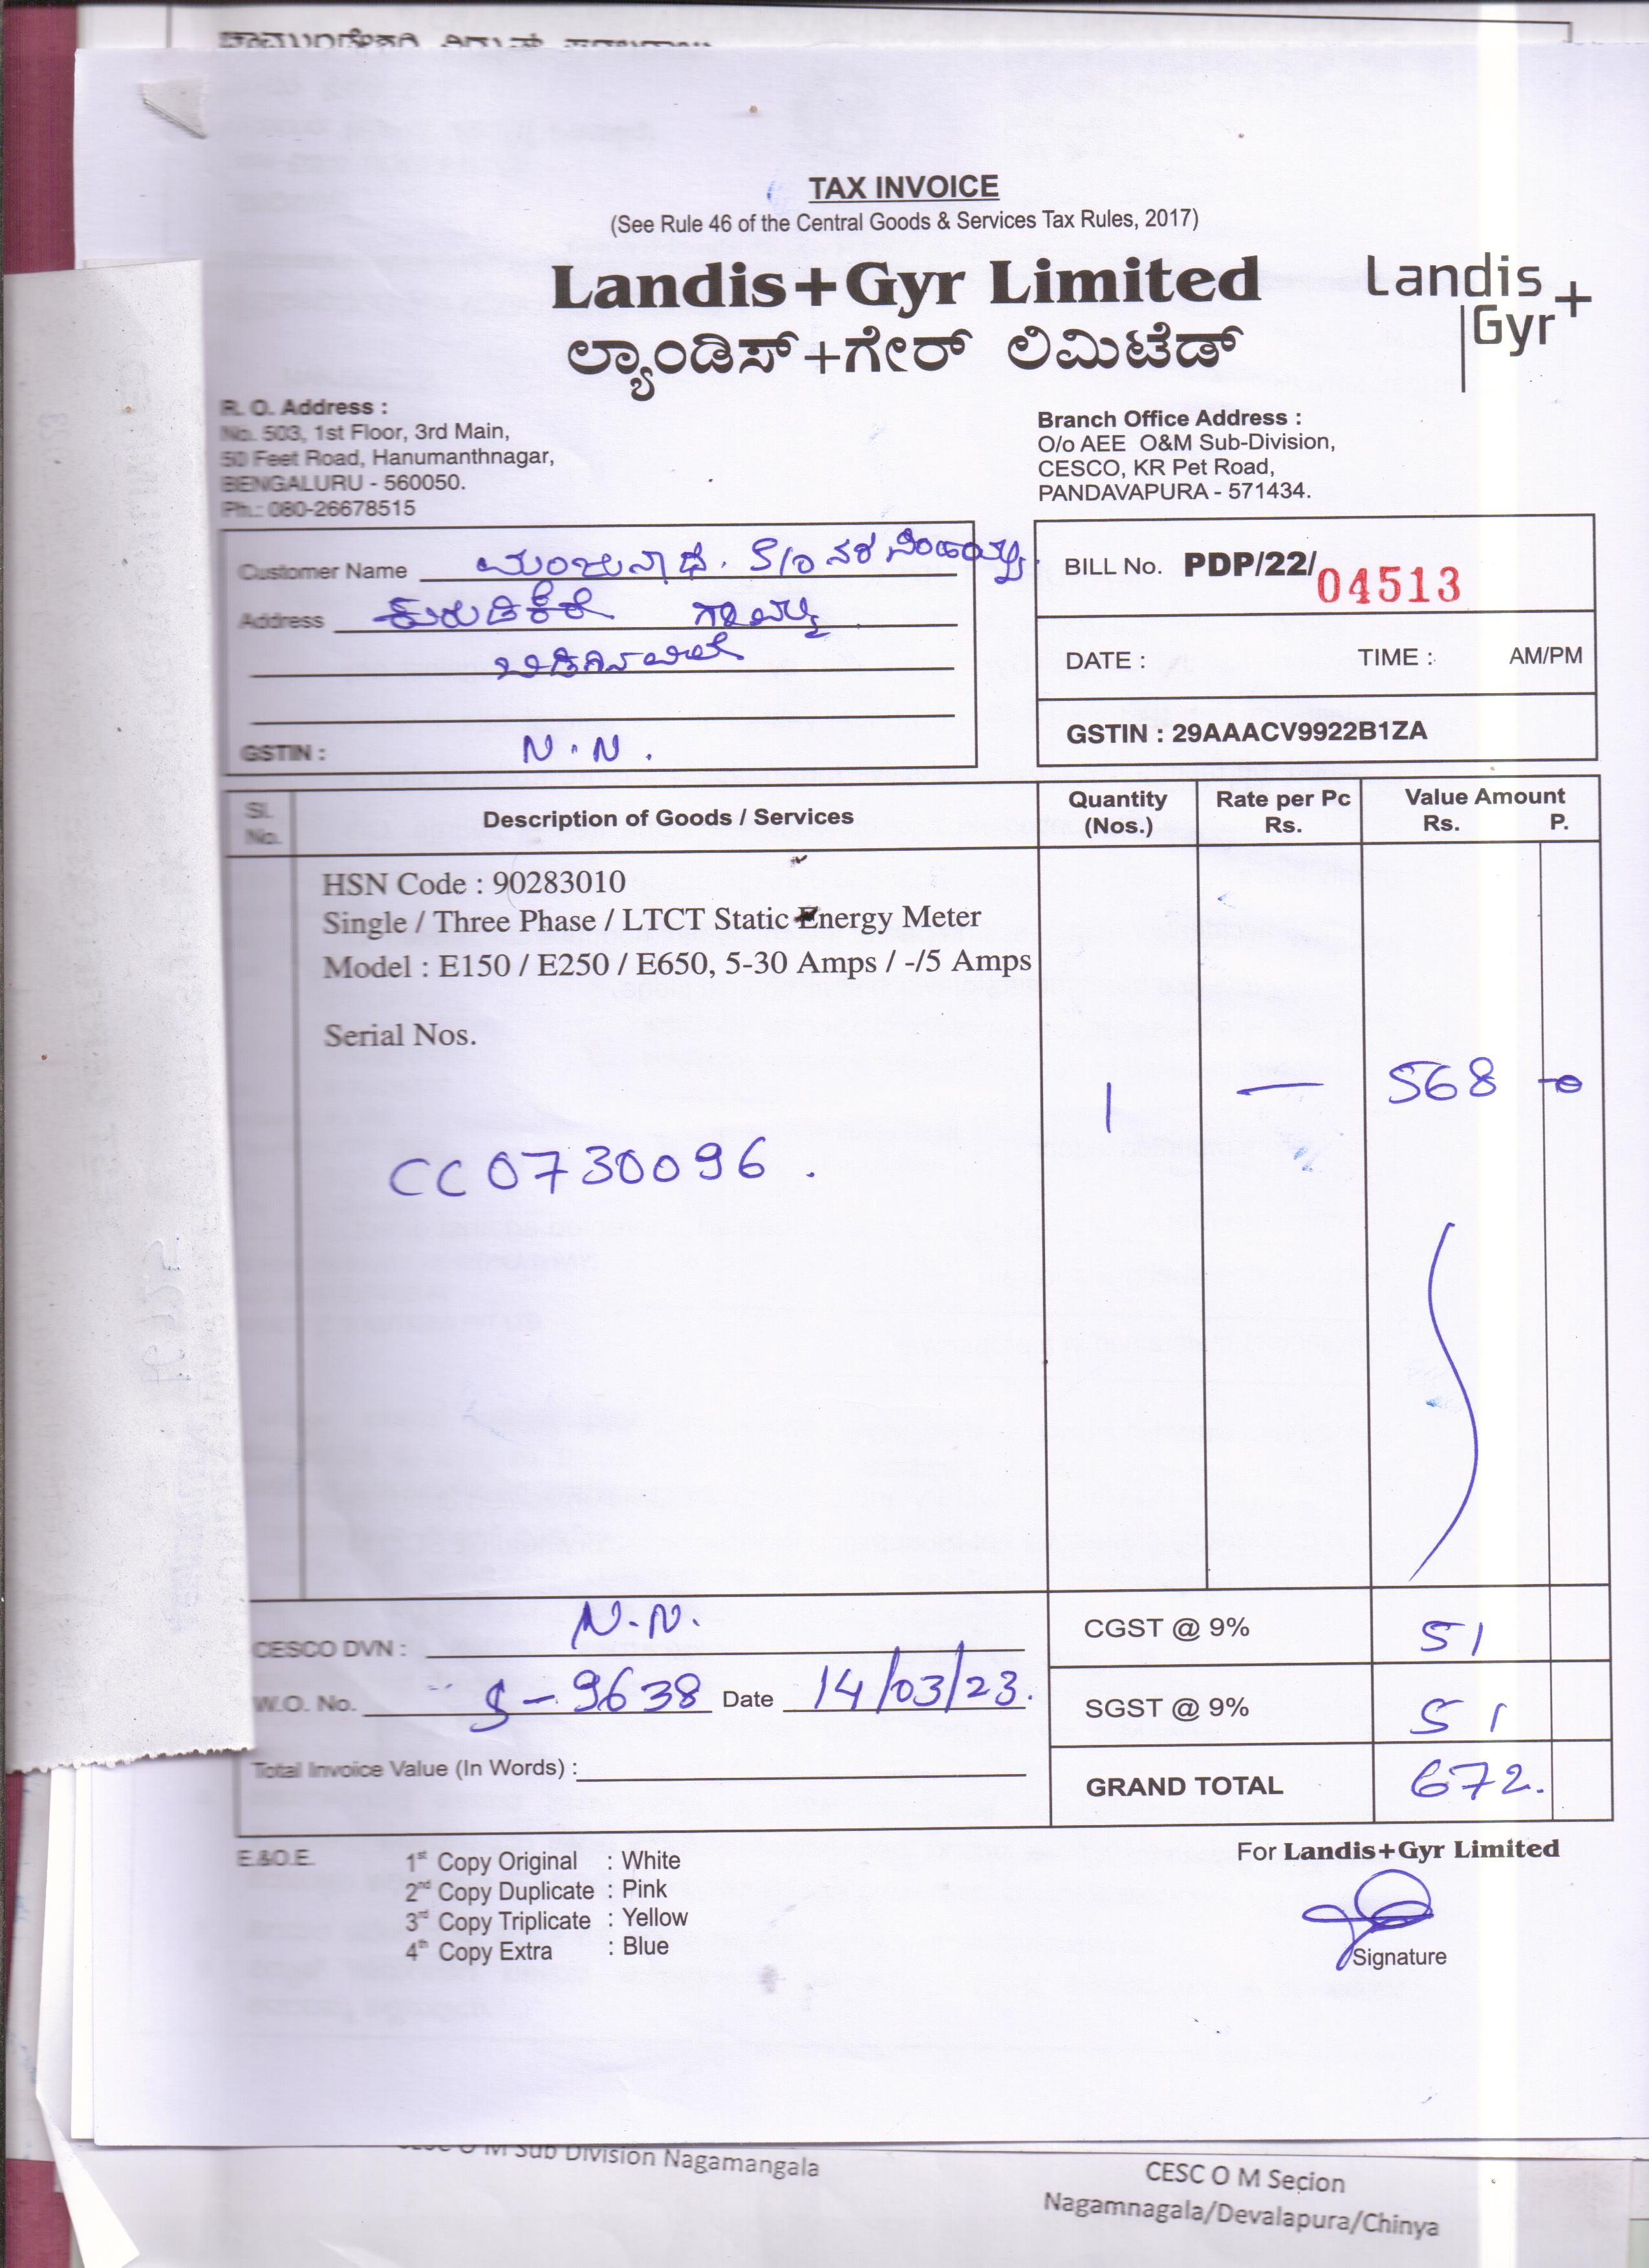 TAX INVOICE
(See Rule 46 of the Central Goods & Services Tax Rules, 2017)
Landis+Gyr Limited
Landis+
Gyr
ಲ್ಯಾಂಡಿಸ್+ಗೇರ್ ಲಿಮಿಟೆಡ್
R. O. Address :
No. 503, 1st Floor, 3rd Main,
50 Feet Road, Hanumanthnagar,
BENGALURU - 560050.
Ph.: 080-26678515
Branch Office Address :
O/o AEE O&M Sub-Division,
CESCO, KR Pet Road,
PANDAVAPURA - 571434.
Customer Name ಮಂಜುನಾಥ. S/o ನರಸಿಂಹಯ್ಯ
Address ಗ್ರಾಮ
GSTIN : N.N.
BILL No. PDP/22/ 04513
DATE : TIME : AM/PM
GSTIN : 29AAACV9922B1ZA
Sl. No. Description of Goods / Services Quantity (Nos.) Rate per Pc Rs. Value Amount Rs. P.
HSN Code : 90283010
Single / Three Phase / LTCT Static Energy Meter
Model : E150 / E250 / E650, 5-30 Amps / -/5 Amps
Serial Nos.
1 — 568
CC0730096.
CESCO DVN : N.N.
CGST @ 9% 51
W.O. No. S-9638 Date 14/03/23.
SGST @ 9% 51
Total Invoice Value (In Words) :
GRAND TOTAL 672.
E.&O.E.
1st Copy Original : White
2nd Copy Duplicate : Pink
3rd Copy Triplicate : Yellow
4th Copy Extra : Blue
For Landis+Gyr Limited
Signature
CESC O M Sub Division Nagamangala
CESC O M Secion
Nagamnagala/Devalapura/Chinya